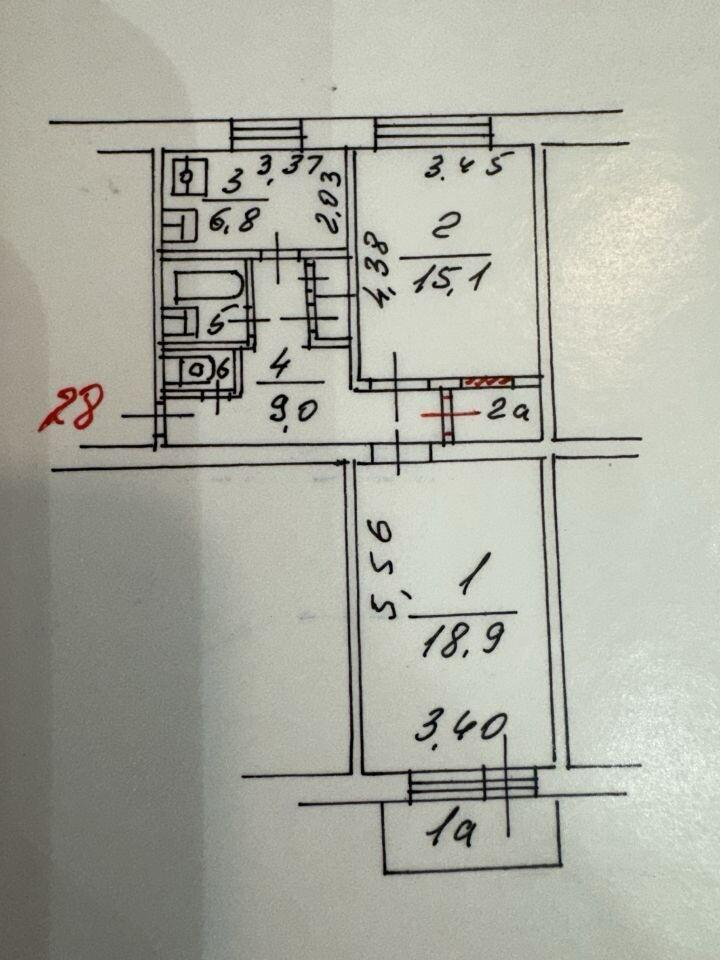 3,37
3
6,8
2,03
3.45
2
15,1
4,38
5
6
4
9,0
28
2а
5,56
1
18,9
3,40
1а